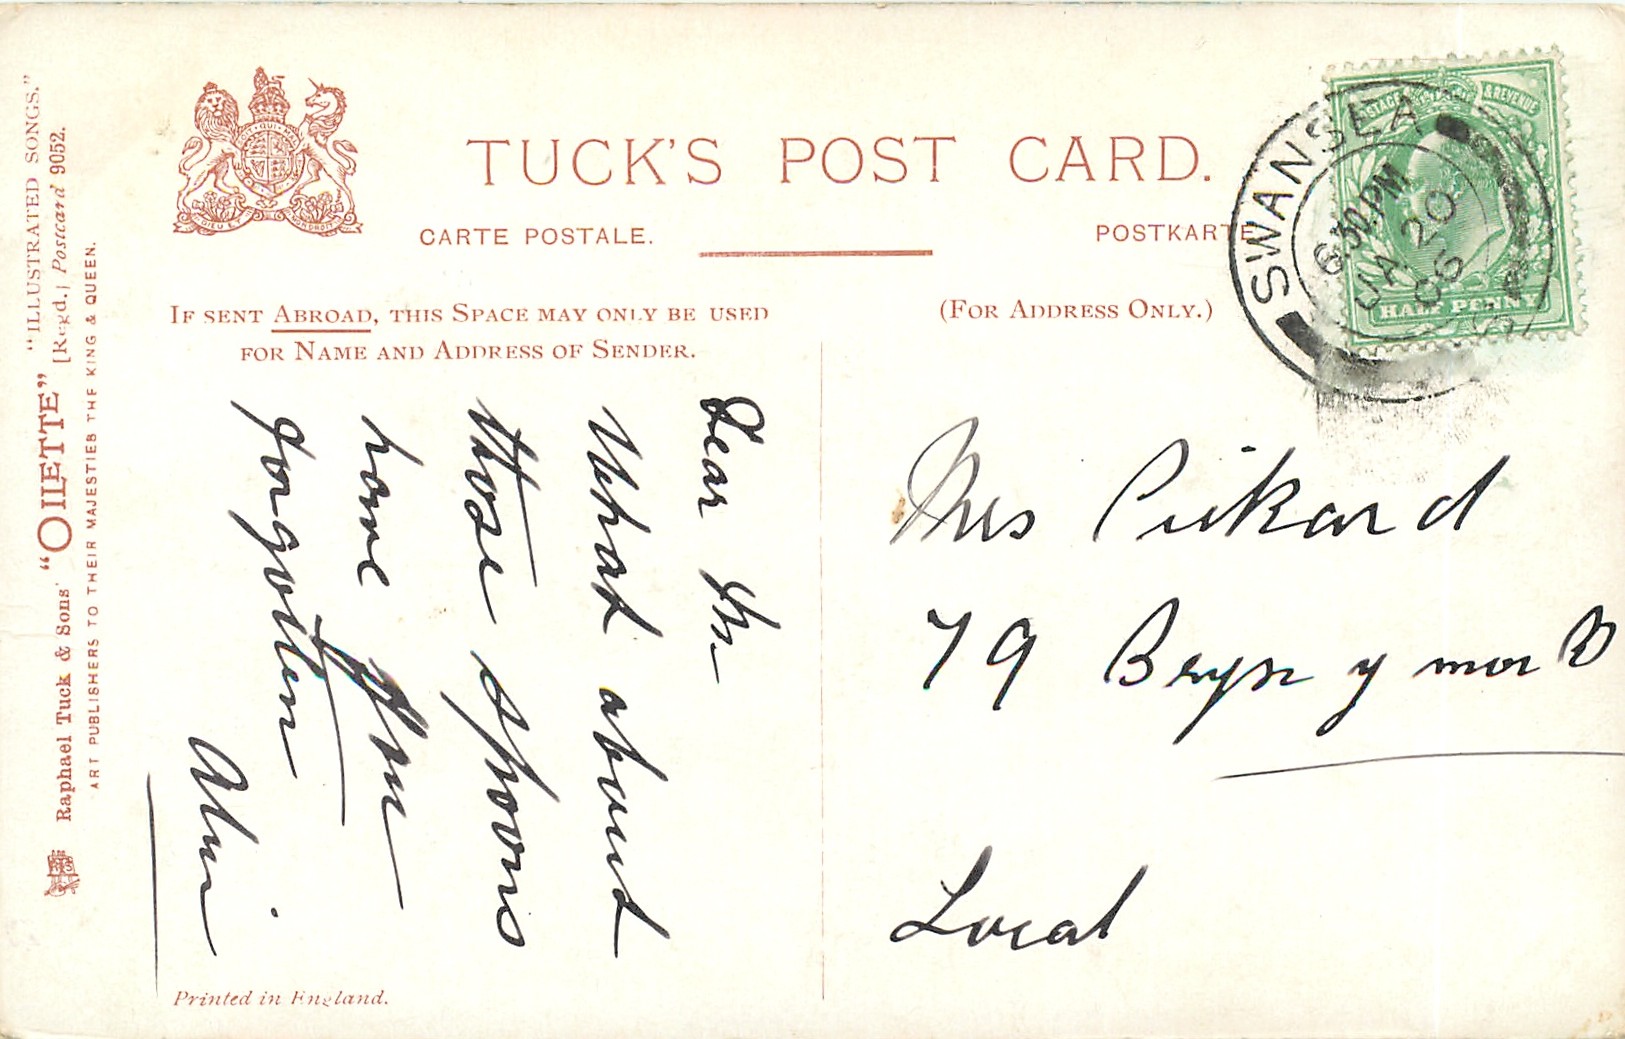 TUCK'S POST CARD.
CARTE POSTALE.
POSTKARTE
IF SENT ABROAD, THIS SPACE MAY ONLY BE USED
FOR NAME AND ADDRESS OF SENDER.
(FOR ADDRESS ONLY.)
POSTAGE & REVENUE
HALF PENNY
SWANSEA
6.30 PM
JA 20
06
Dear
What about
those spoons
have
forgotten
Mrs Pickard
79 Bryn y mor
Local
"ILLUSTRATED SONGS."
Raphael Tuck & Sons' "OILETTE" [Regd.] Postcard 9052.
ART PUBLISHERS TO THEIR MAJESTIES THE KING & QUEEN.
Printed in England.